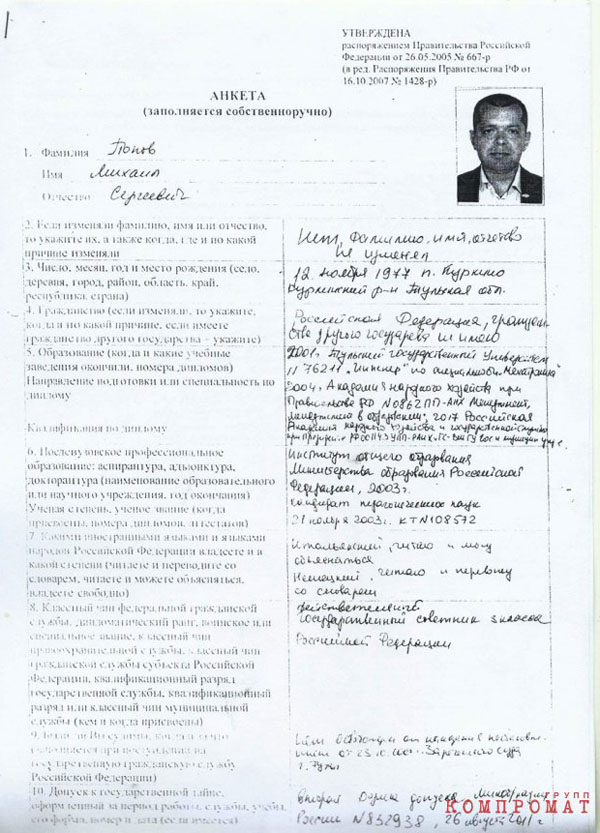 УТВЕРЖДЕНА
распоряжением Правительства Российской
Федерации от 26.05.2005 № 667-р
(в ред. Распоряжения Правительства РФ от
16.10.2007 № 1428-р)
АНКЕТА
(заполняется собственноручно)
1. Фамилия Попов
Имя Михаил
Отчество Сергеевич
2. Если изменяли фамилию, имя или отчество,
то укажите их, а также когда, где и по какой
причине изменяли
Нет, фамилию, имя, отчество
не изменял
3. Число, месяц, год и место рождения (село,
деревня, город, район, область, край,
республика, страна)
12 ноября 1977 п. Куркино
Куркинский р-н Тульская обл.
4. Гражданство (если изменяли, то укажите,
когда и по какой причине, если имеете
гражданство другого государства - укажите)
Российская Федерация, гражданство
другого государства не имею
5. Образование (когда и какие учебные
заведения окончили, номера дипломов)
Направление подготовки или специальность по
диплому
Квалификация по диплому
2001. Тульский государственный Университет
"Инженер" по специальности
2004. Академия народного хозяйства при
Правительстве РФ Менеджмент,
2017 Российская
Академия народного хозяйства и государственной службы
при Президенте РФ
6. Послевузовское профессиональное
образование: аспирантура, адъюнктура,
докторантура (наименование образовательного
или научного учреждения, год окончания)
Ученая степень, ученое звание (когда
присвоены, номера дипломов, аттестатов)
Институт общего образования
Министерства образования Российской
Федерации, 2003г.
Кандидат педагогических наук
21 ноября 2003г. КТ N108572
7. Какими иностранными языками и языками
народов Российской Федерации владеете и в
какой степени (читаете и переводите со
словарем, читаете и можете объясняться,
владеете свободно)
Итальянский, читаю и могу
объясняться
Немецкий, читаю и перевожу
со словарем
8. Классный чин федеральной гражданской
службы, дипломатический ранг, воинское или
специальное звание, классный чин
правоохранительной службы, классный чин
гражданской службы субъекта Российской
Федерации, квалификационный разряд
государственной службы, квалификационный
разряд или классный чин муниципальной
службы (кем и когда присвоены)
Действительный
государственный советник 3 класса
Российской Федерации
9. Были ли Вы судимы, когда и за что
государственную гражданскую службу
Российской Федерации)
суда
г. Тулы
10. Допуск к государственной тайне,
оформленный за период работы, службы, учебы,
его форма, номер и дата (если имеется)
Вторая форма допуска
России N832938, 26 август 2011г
ГРУПП
КОМПРОМАТ